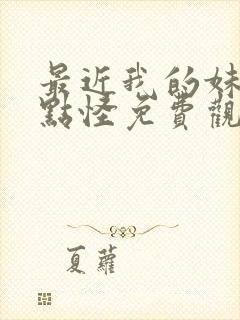 最近我的妹
點怪免費觀
夏蘿